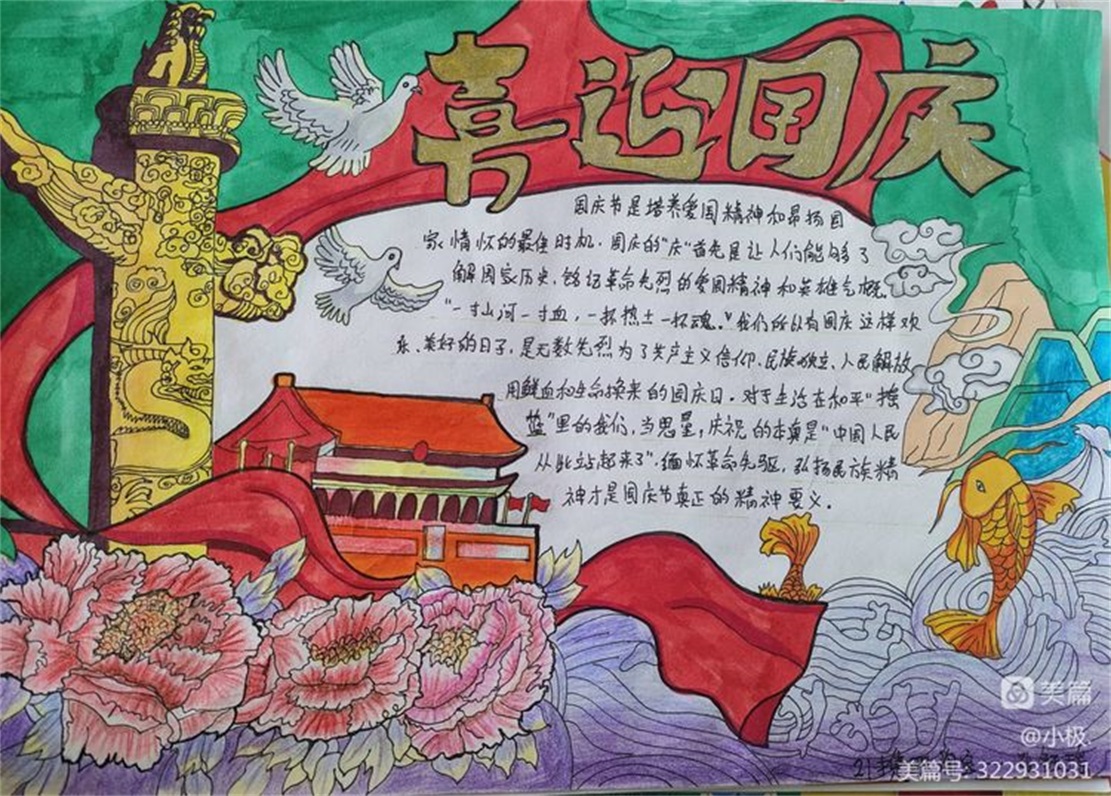 喜迎国庆
国庆节是培养爱国精神和昂扬国
家情怀的最佳时机。国庆的"庆"首先是让人们能够了
解国家历史,铭记革命先烈的爱国精神和英雄气概。
"一寸山河一寸血,一抔热土一抔魂。"我们所以有国庆这样欢
乐、美好的日子,是无数先烈为了共产主义信仰、民族独立、人民解放
用鲜血和生命换来的国庆日。对于生活在和平"摇
篮"里的我们,当思量,庆祝的本真是"中国人民
从此站起来了",缅怀革命先驱,弘扬民族精
神才是国庆节真正的精神要义。
美篇
@小极
美篇号: 322931031